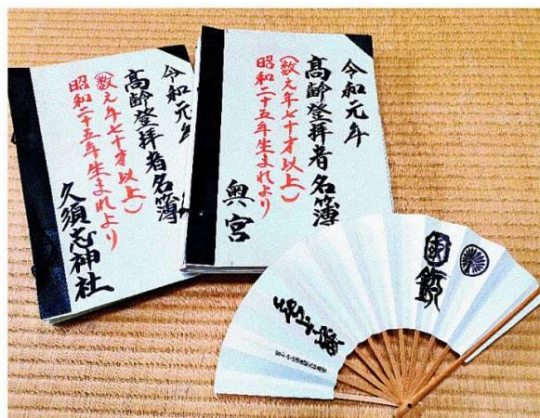 令和元年
高齢登拝者名簿
(数え年七十才以上)
昭和二十五年生まれより
久須志神社
令和元年
高齢登拝者名簿
(数え年七十才以上)
昭和二十五年生まれより
奥宮